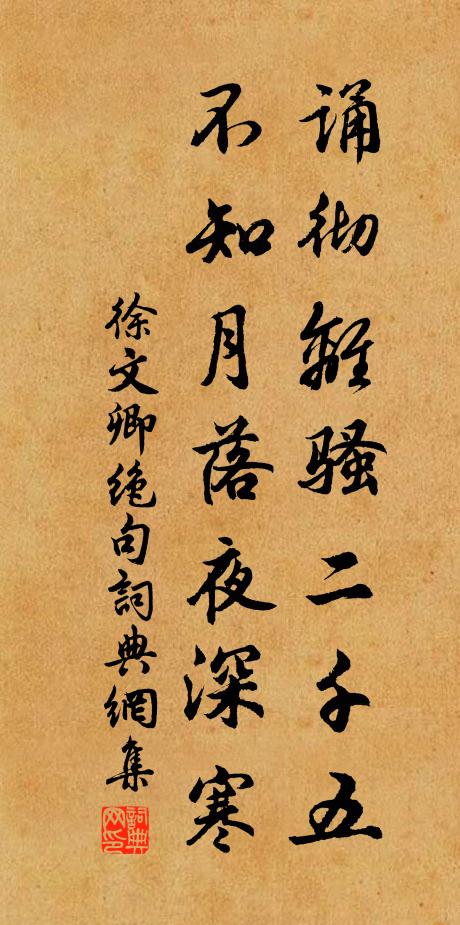 诵彻離骚二千五
不知月落夜深寒
徐文卿绝句詞典網集
詞典网印